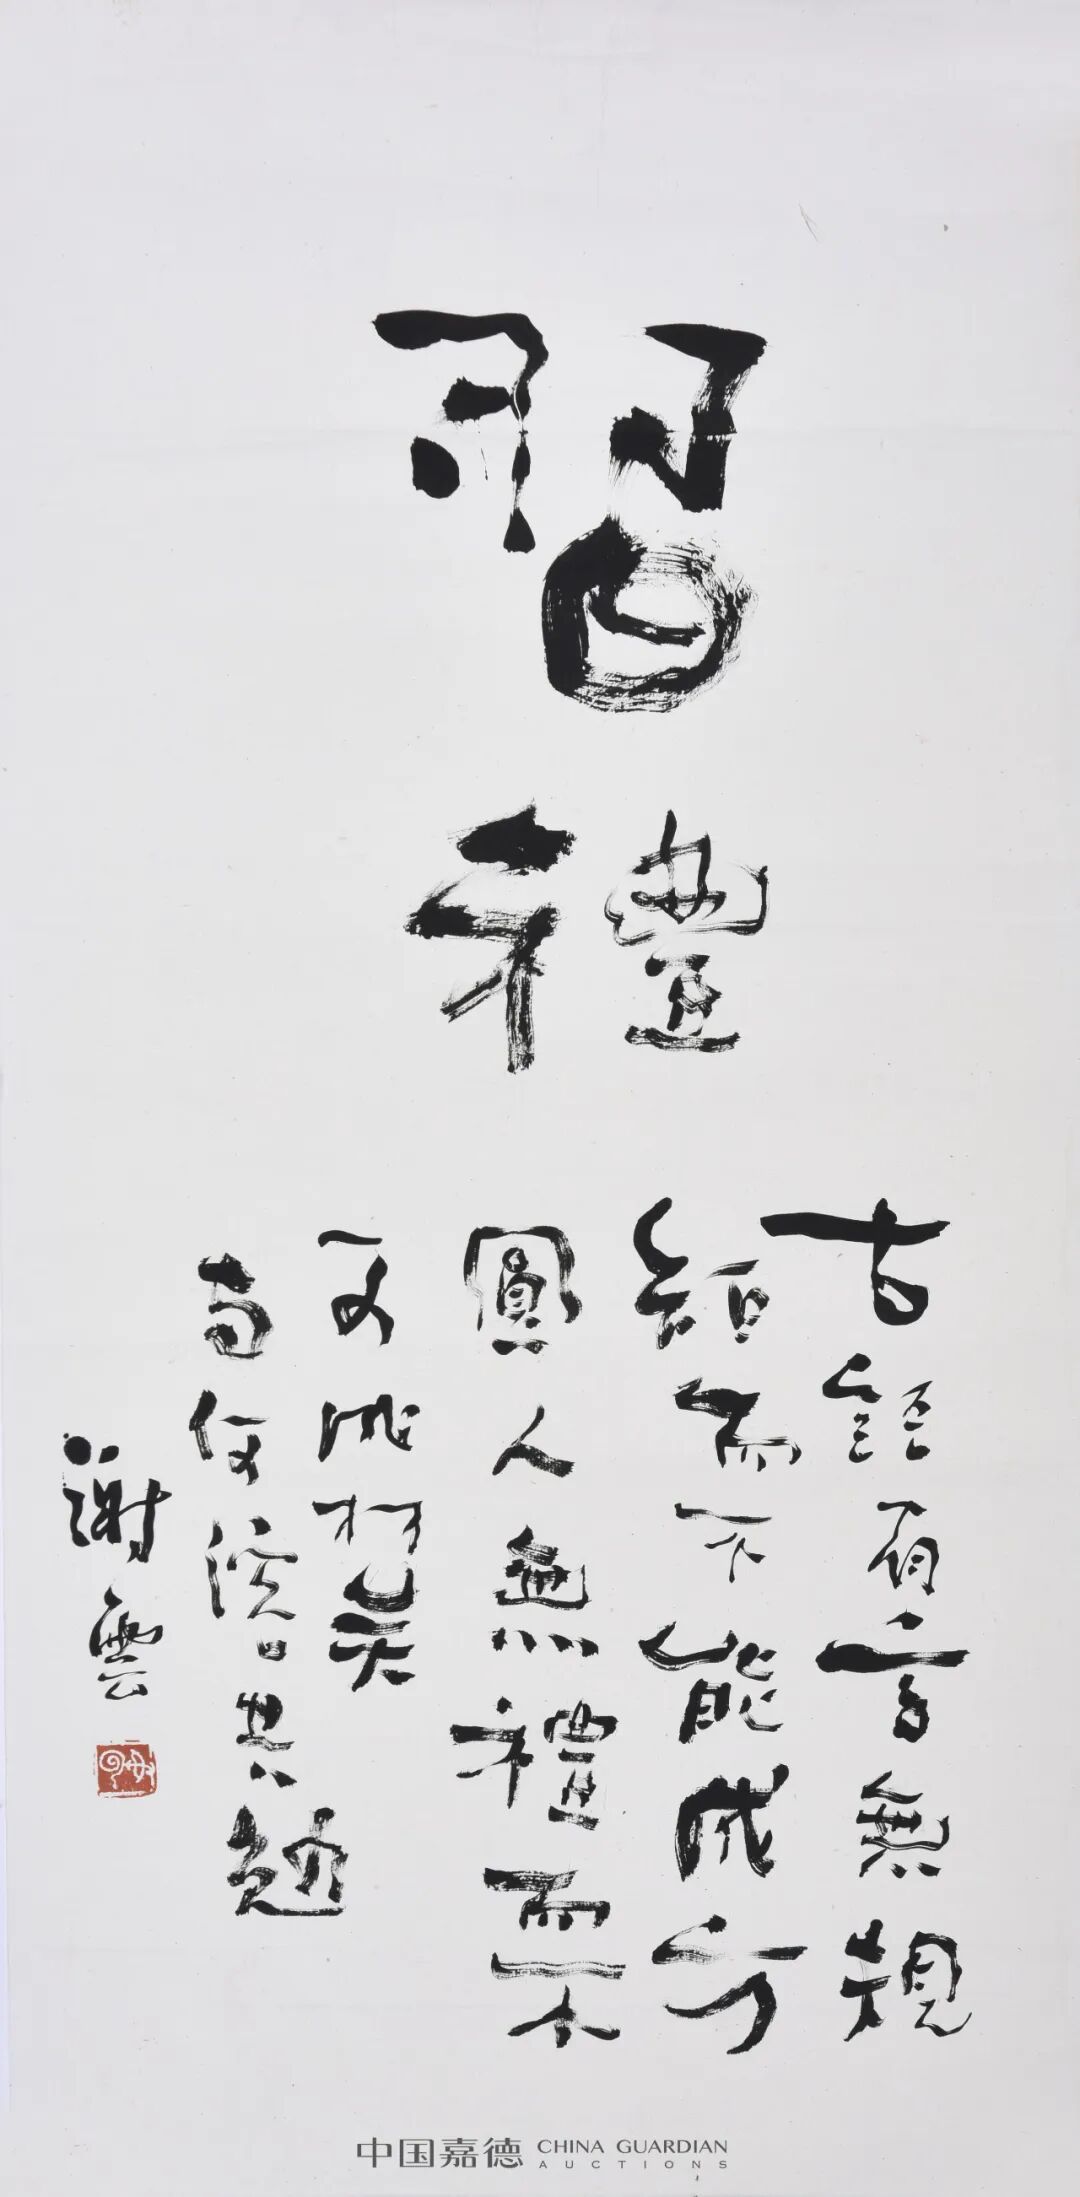 習禮
古語有言無規
矩而不能成方
圓人無禮而不
可成材矣
何 日共勉
謝雲
中国嘉德 CHINA GUARDIAN
AUCTIONS